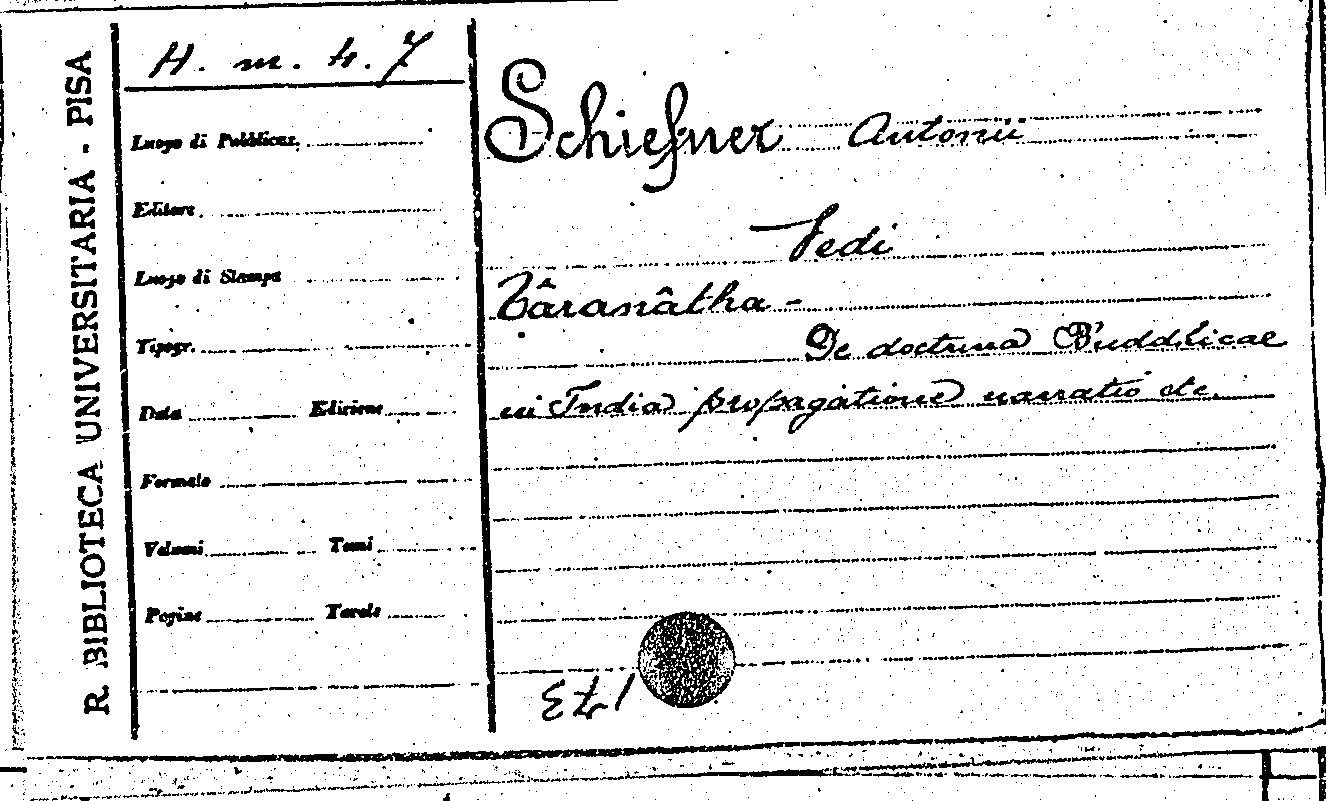 R. BIBLIOTECA UNIVERSITARIA - PISA
H. m. 4. 7
Luogo di Pubblicaz.
Editore
Luogo di Stampa
Tipogr.
Data Edizione
Formato
Volumi Tomi
Pagine Tavole
Schiefner Antonii
Vedi
Târanâtha -
De doctrina Buddhicae
in India propagatione narratio etc.
173